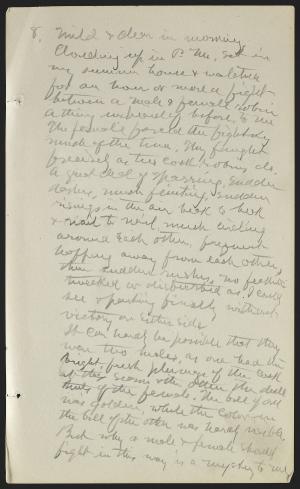 8. Mild & clear in morning
Clouding up in P.M. Sat in
my summer house & watched
for an hour or more a fight
between a male & female robin
a thing unknown before, to me
The female forced the fighting
much of the time. They fought
precisely as two cock robins do.
A great deal of sparring, sudden
dashes, much feinting, sudden
risings in the air beak to beak
& nail to nail, much circling
around each other, frequent
hopping away from each other,
then sudden rushes, no feathers
tweeked or disturbed as I could
see & parting finally without
victory on either side.
It can hardly be possible that they
were two males, as one had the
bright fresh plumage of the cock
at this season & the other the dull
of the female. The bill of one
was golden, while the color on
the bill of the other was hardly visible.
But why a male & female should
fight in this way is a mystery to me